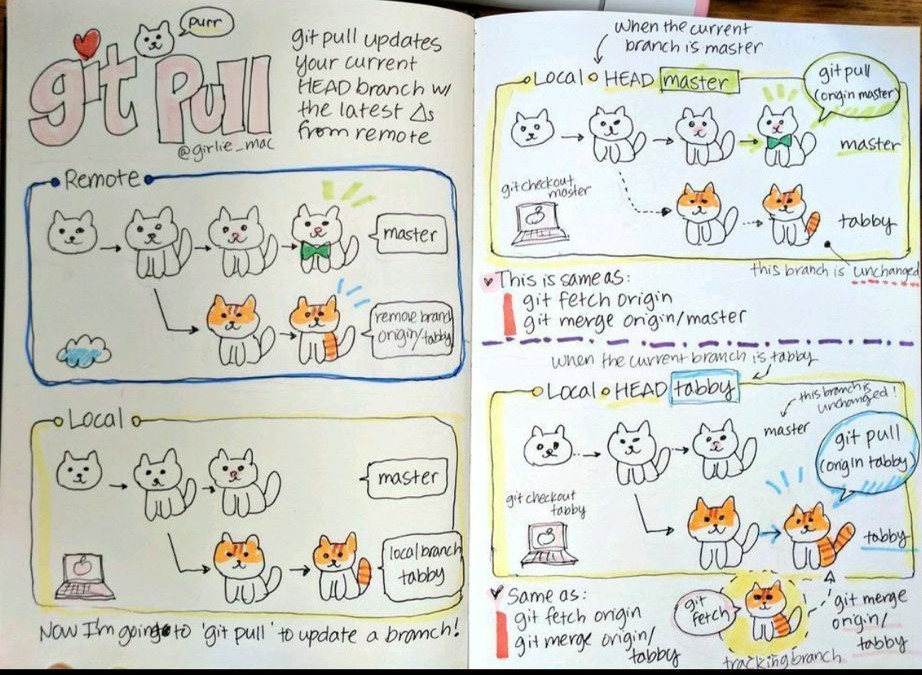 purr
git Pull
@girlie_mac
git pull updates
your current
HEAD branch w/
the latest Δs
from remote
Remote
master
remove branch
origin/tabby
Local
master
local branch
tabby
Now I'm going to 'git pull' to update a branch!
When the current
branch is master
Local HEAD master
git pull
(origin master)
master
git checkout
master
tabby
this branch is unchanged
This is same as:
git fetch origin
git merge origin/master
When the current branch is tabby
Local HEAD tabby
this branch is
unchanged!
master
git pull
(origin tabby)
git checkout
tabby
tabby
Same as:
git fetch origin
git merge origin/
tabby
git
fetch
tracking branch
git merge
origin/
tabby